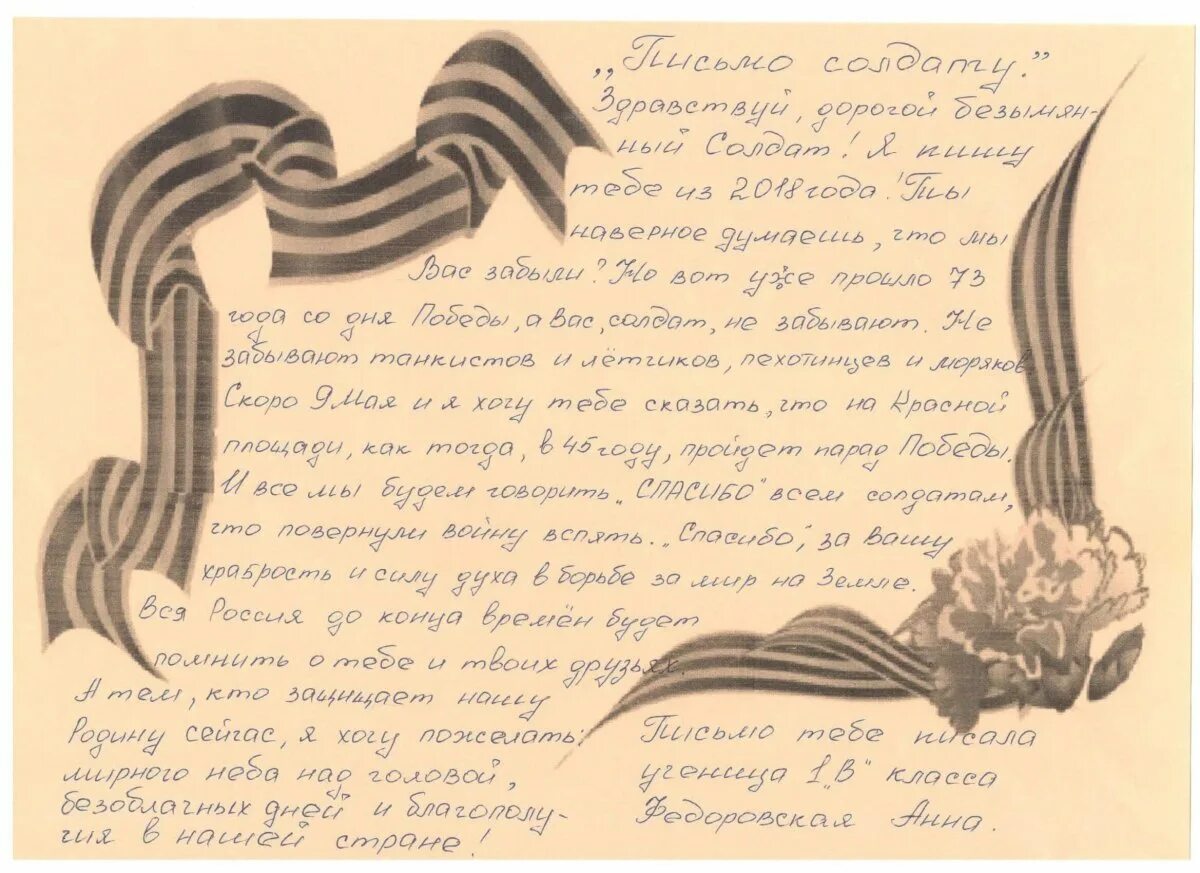 „Письмо солдату."
Здравствуй, дорогой безымян-
ный Солдат! Я пишу
тебе из 2018 года! Ты
наверное думаешь, что мы
Вас забыли? Но вот уже прошло 73
года со дня Победы, а Вас, солдат, не забывают. Не
забывают танкистов и лётчиков, пехотинцев и моряков.
Скоро 9 Мая и я хочу тебе сказать, что на Красной
площади, как тогда, в 45 году, пройдет парад Победы.
И все мы будем говорить „СПАСИБО" всем солдатам,
что повернули войну вспять. „Спасибо", за вашу
храбрость и силу духа в борьбе за мир на Земле.
Вся Россия до конца времён будет
помнить о тебе и твоих друзьях.
А тем, кто защищает нашу
Родину сейчас, я хочу пожелать
мирного неба над головой,
безоблачных дней и благополу-
чия в нашей стране!
Письмо тебе писала
ученица 1„В" класса
Федоровская Анна.